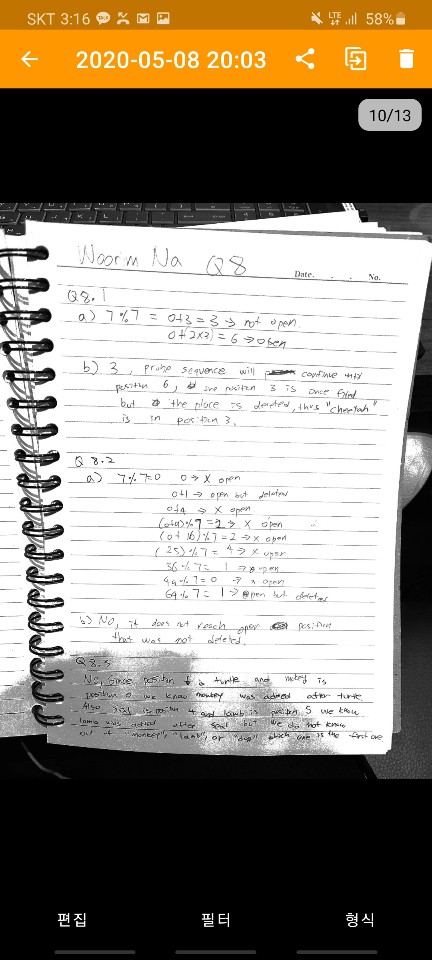 SKT 3:16
LTE
58%
2020-05-08 20:03
10/13
Woorim Na Q8
Date. . . No.
Q8.1
a) 7%7 = 0+3 = 3 → not open
0+(2x3) = 6 → open
b) 3, probe sequence will continue until
position 6, since position 3 is once filled
but the place is deleted, thus "cheetah"
is in position 3.
Q 8.2
a) 7%7=0 0 → x open
0+1 → open but deleted
0+4 → x open
(0+9)%7 = 2 → x open
(0+16)%7 = 2 → x open
(25)%7 = 4 → x open
36%7 = 1 → open
49%7 = 0 → x open
64%7 = 1 → open but deleted
b) No, it does not reach open position
that was not deleted.
Q 8.5
No, since position is turtle and is
position 0 we know monkey was added after turtle.
Also, is position 4 and lamb is position 5 we know
lamb was added after seal but we do not know
out of "monkey", "lamb", or which one is the first one
편집
필터
형식